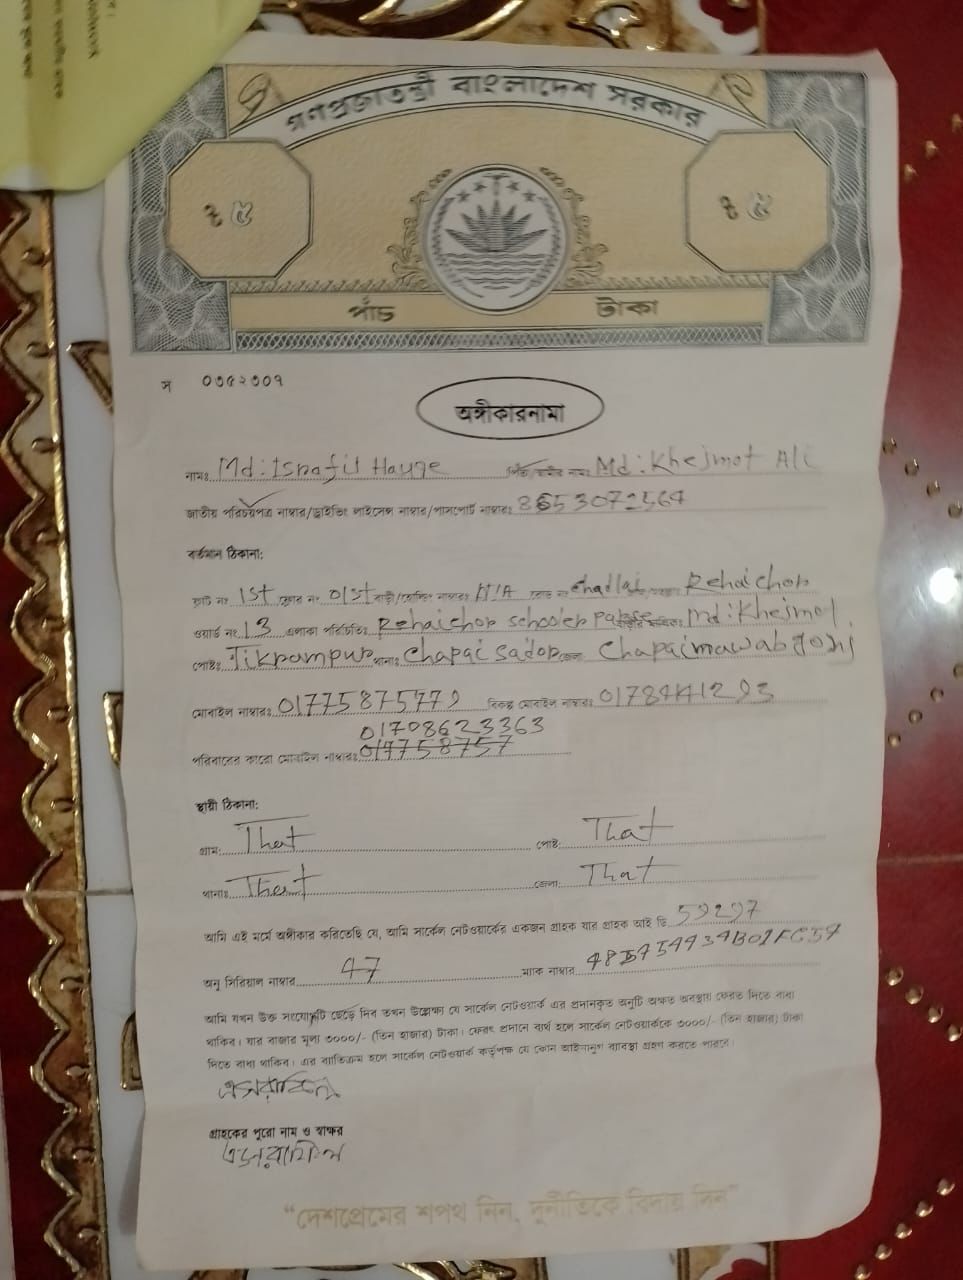 গণপ্রজাতন্ত্রী বাংলাদেশ সরকার
৳ ৫ ৳ ৫
পাঁচ টাকা
স ০৩৫২৩০৭
অঙ্গীকারনামা
নামঃ Md: Israfil Hauqe নাম: Md: Khejmot Ali
জাতীয় পরিচয়পত্র নাম্বার/ড্রাইভিং লাইসেন্স নাম্বার/পাসপোর্ট নাম্বারঃ 8653072564
বর্তমান ঠিকানা:
ফ্লাট নং 1st ফ্লোর নং 01st বাড়ী/হোল্ডিং নাম্বারঃ N/A রোড নং chadlai Rehaichor
ওয়ার্ড নং 13 এলাকা পরিচিতিঃ Rehaichor schooler Md: Khejmot
পোষ্টঃ Tikrampur থানাঃ Chapai sador জেলা Chapainawabgonj
মোবাইল নাম্বারঃ 01775875779 বিকল্প মোবাইল নাম্বারঃ 01784441293
01708623363
পরিবারের কারো মোবাইল নাম্বারঃ
স্থায়ী ঠিকানা:
গ্রাম: That পোষ্ট: That
থানাঃ That জেলা: That
আমি এই মর্মে অঙ্গীকার করিতেছি যে, আমি সার্কেল নেটওয়ার্কের একজন গ্রাহক যার গ্রাহক আই ডি 59297
অনু সিরিয়াল নাম্বার 47 ম্যাক নাম্বার
আমি যখন উক্ত সংযোগটি ছেড়ে দিব তখন উল্লেক্ষ্য যে সার্কেল নেটওয়ার্ক এর প্রদানকৃত অনুটি অক্ষত অবস্থায় ফেরত দিতে বাধ্য
থাকিব। যার বাজার মূল্য ৩০০০/- (তিন হাজার) টাকা। ফেরৎ প্রদানে ব্যর্থ হলে সার্কেল নেটওয়ার্ককে ৩০০০/- (তিন হাজার) টাকা
দিতে বাধ্য থাকিব। এর ব্যতিক্রম হলে সার্কেল নেটওয়ার্ক কর্তৃপক্ষ যে কোন আইনানুগ ব্যবস্থা গ্রহণ করতে পারবে।
এসরাফিল
গ্রাহকের পুরো নাম ও স্বাক্ষর
এসরাফিল
“দেশপ্রেমের শপথ নিন, দুর্নীতিকে বিদায় দিন”